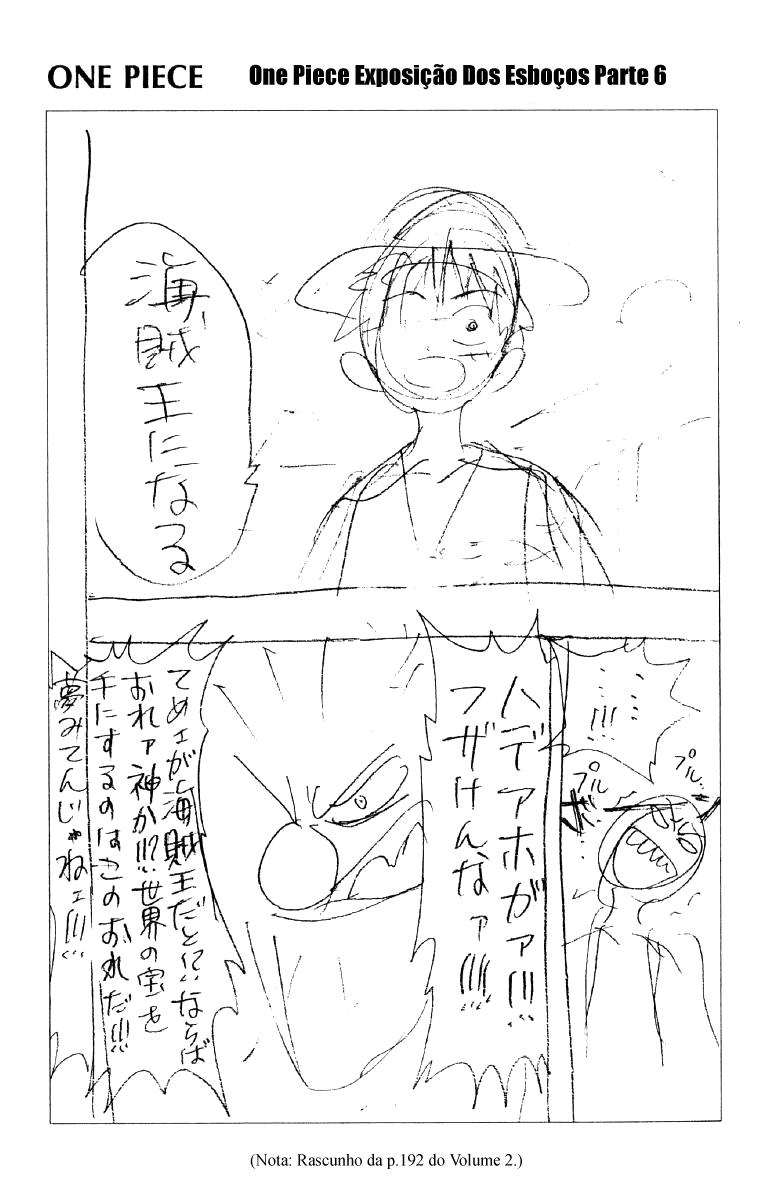 ONE PIECE
One Piece Exposição Dos Esboços Parte 6
海賊王になる
……!!!
プル…
プル
ハデアホがァ!!!
フザけんなァ!!!!
てめェが海賊王だと!?ならば
おれァ神か!!?世界の宝を
手にするのはこのおれだ!!!
夢みてんじゃねェ!!!
(Nota: Rascunho da p.192 do Volume 2.)